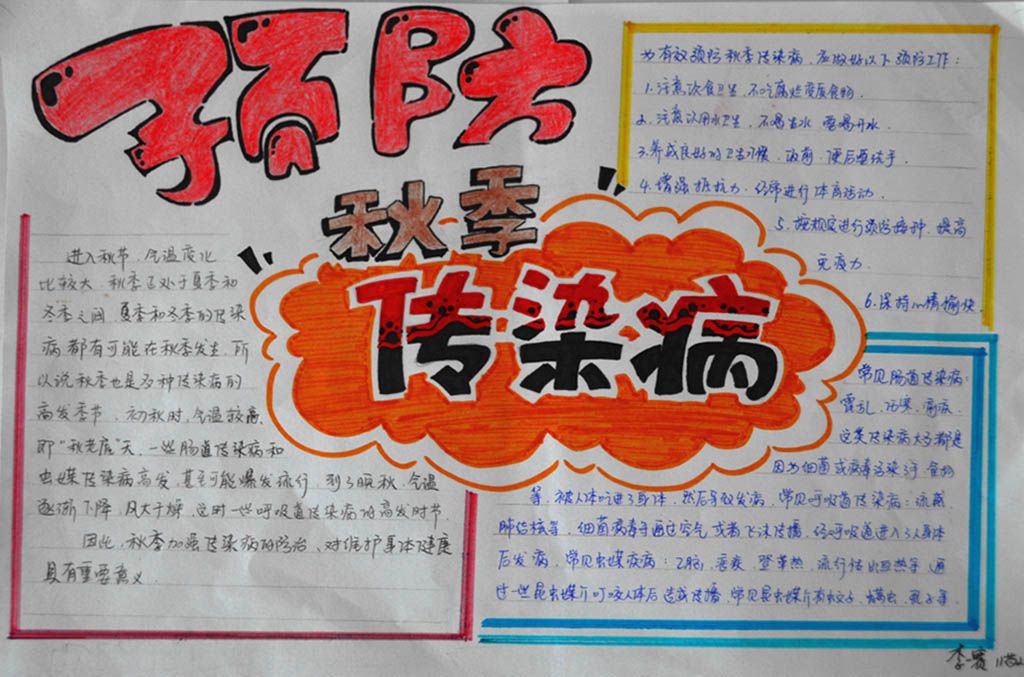 预防
秋季
传染病
进入秋节,气温变化
比较大,秋季正处于夏季和
冬季之间,夏季和冬季的传染
病都有可能在秋季发生,所
以说秋季也是多种传染病的
高发季节,初秋时,气温较高,
即“秋老虎”天,一些肠道传染病和
虫媒传染病高发,甚至可能爆发流行,到了晚秋,气温
逐渐下降,风大干燥,这时一些呼吸道传染病的高发时节.
因此,秋季加强传染病的防治,对维护身体健康
具有重要意义.
为有效预防秋季传染病,应做好以下预防工作:
1.注意饮食卫生,不吃腐烂变质食物.
2.注意饮用水卫生,不喝生水,要喝开水.
3.养成良好的卫生习惯,饭前、便后要洗手.
4.增强抵抗力,经常进行体育活动.
5.按规定进行预防接种,提高
免疫力.
6.保持心情愉快
常见肠道传染病:
霍乱、伤寒、痢疾.
这类传染病大多都是
因为细菌或病毒污染了食物
等,被人体吃进了身体,然后导致发病,常见呼吸道传染病:流感、
肺结核等,细菌病毒等通过空气或者飞沫传播,经呼吸道进入了人身体
后发病,常见虫媒疾病:乙脑、疟疾、登革热、流行性出血热等,通
过一些昆虫媒介叮咬人体后造成传播,常见昆虫媒介有蚊子、螨虫、虱子等.
李赛